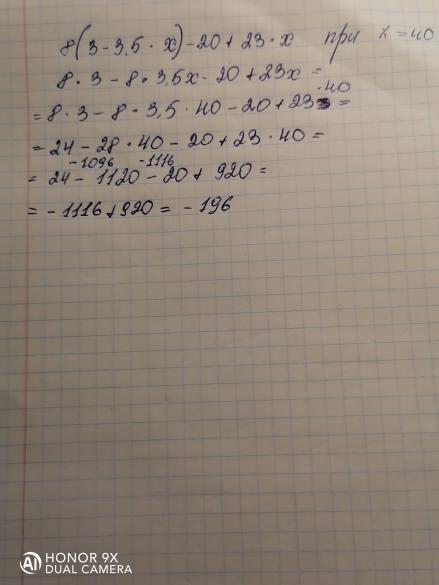 8(3-3,5·x)-20+23·x при x=40
8·3-8·3,5x-20+23x=
·40
=8·3-8·3,5·40-20+23=
=24-28·40-20+23·40=
-1096 -1116
=24-1120-20+920=
=-1116+920=-196
HONOR 9X
DUAL CAMERA